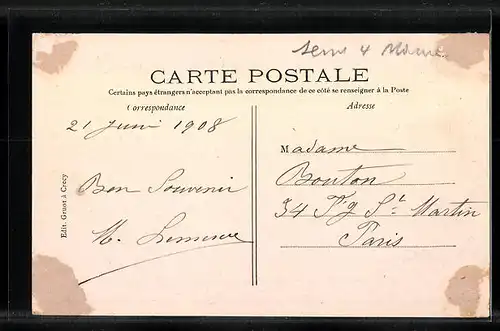 Seine & Marne
CARTE POSTALE
Certains pays étrangers n'acceptant pas la correspondance de ce côté se renseigner à la Poste
Correspondance
Adresse
21 Juin 1908
Bon Souvenir
Madame
Bouton
34 Fg St Martin
Paris
Edit. Gruot à Crécy